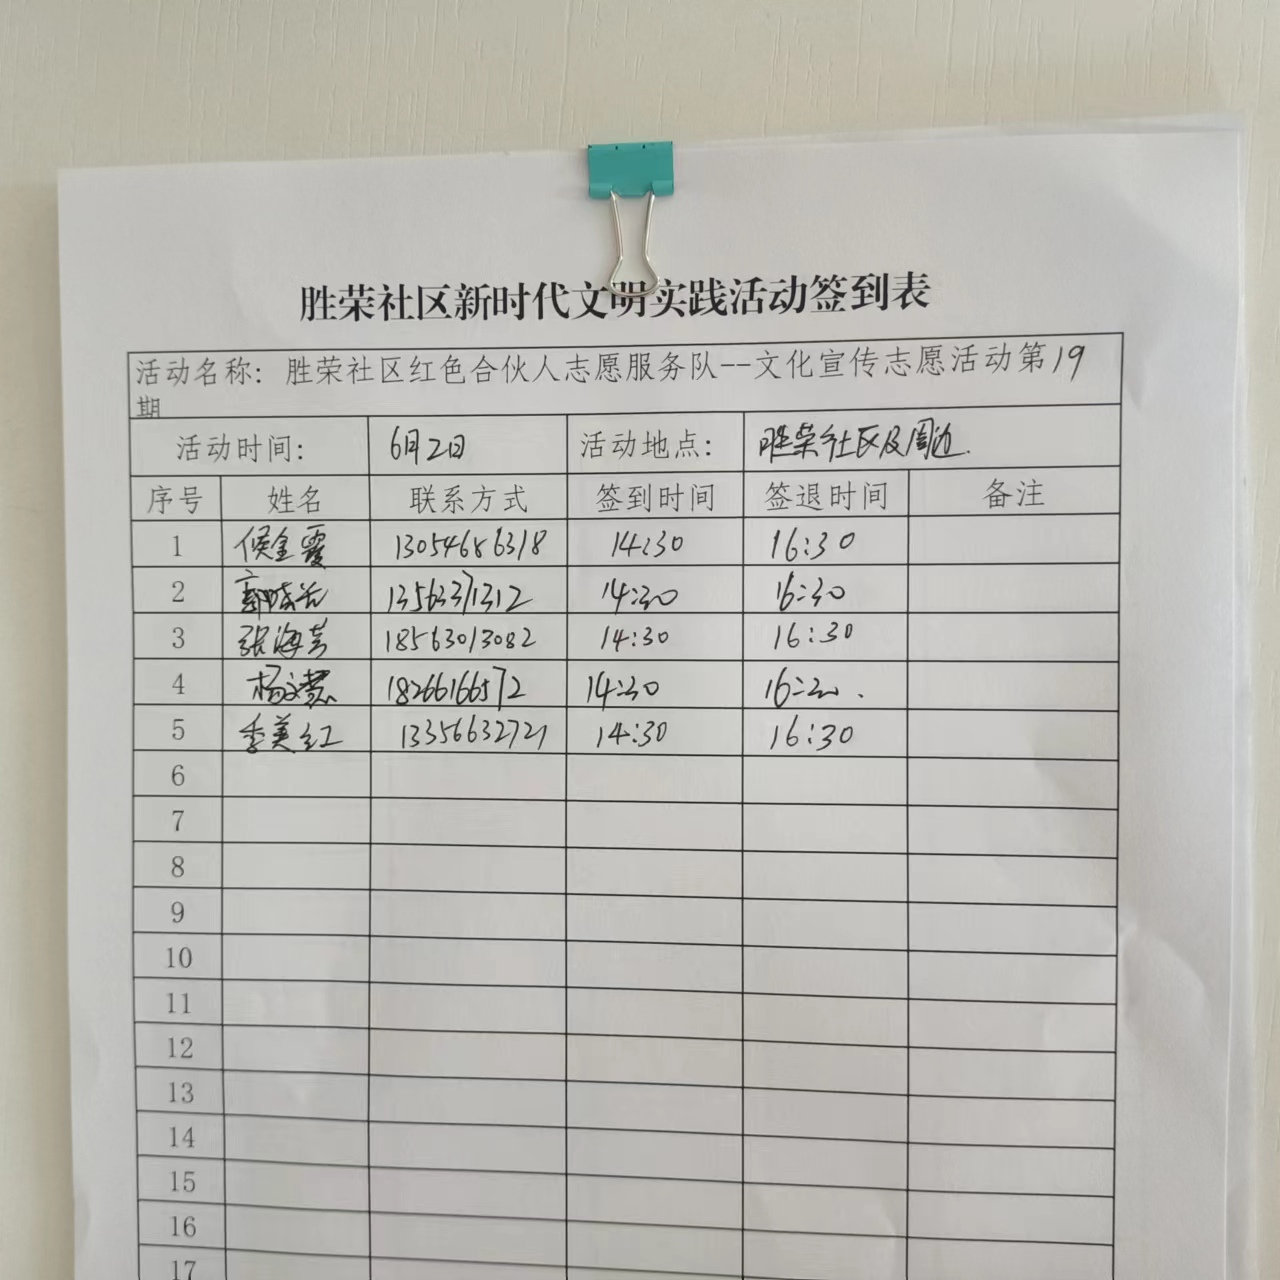 胜荣社区新时代文明实践活动签到表
活动名称：胜荣社区红色合伙人志愿服务队--文化宣传志愿活动第19
期
活动时间： 6月2日 活动地点： 胜荣社区及周边.
序号 姓名 联系方式 签到时间 签退时间 备注
1 侯金霞 13054686318 14:30 16:30
2 13563371312 14:30 16:30
3 张海芳 18563013082 14:30 16:30
4 杨文慧 18266166572 14:30 16:30.
5 季美红 13356632721 14:30 16:30
6
7
8
9
10
11
12
13
14
15
16
17